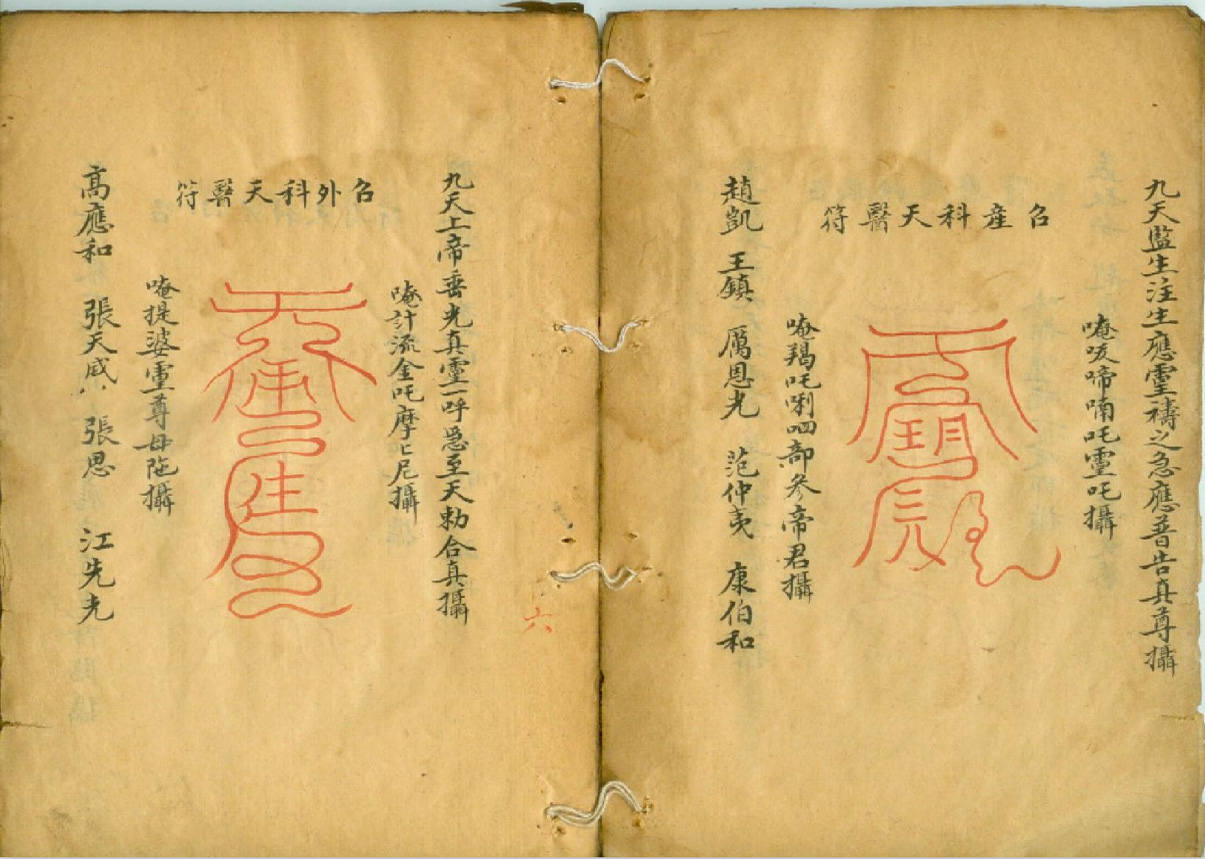 九天監生注生應靈禱之急應普告真尊攝
唵㕞啼喃吒靈吒攝
召產科天醫符
唵羯吒唎呬部參帝君攝
趙凱 王鎮 厲恩光 范仲夷 康伯和
六
九天上帝垂光真靈一呼急至天勅合真攝
唵計流金吒摩匕尼攝
召外科天醫符
唵提婆靈尊母陁攝
高應和 張天威 張恩 江先光